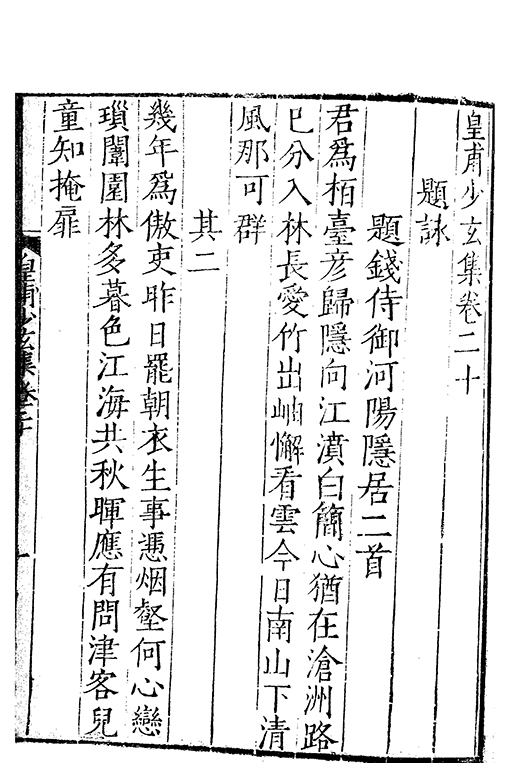 皇甫少玄集卷二十
題詠
題錢侍御河陽隱居二首
君爲栢臺彦歸隱向江濆白簡心猶在滄洲路
巳分入林長愛竹出岫懈看雲今日南山下清
風那可群
其二
幾年爲傲吏昨日罷朝衣生事慿烟壑何心戀
瑣闈園林多暮色江海共秋暉應有問津客兒
童知掩扉
皇甫少玄集卷二十
一